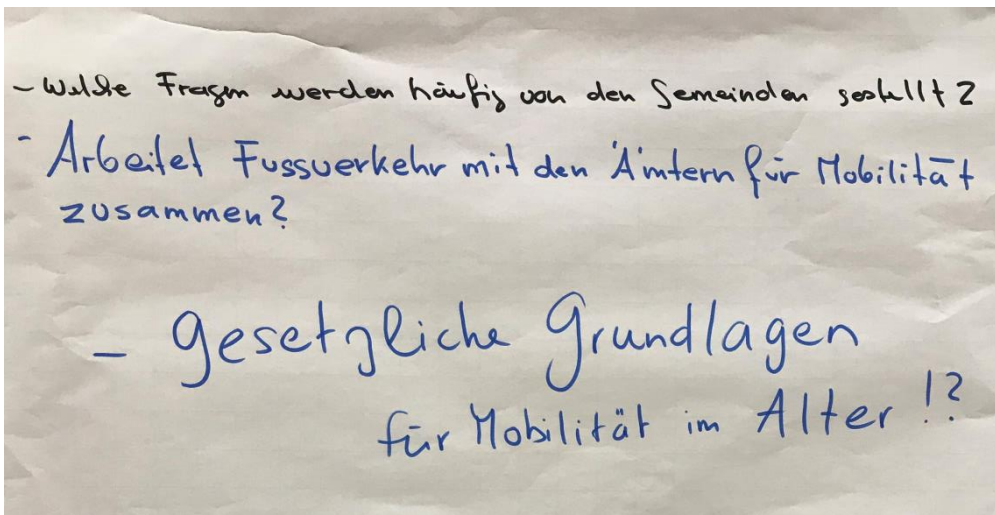 - Welche Fragen werden häufig von den Gemeinden gestellt?
- Arbeitet Fussverkehr mit den Ämtern für Mobilität
zusammen?
- gesetzliche Grundlagen
für Mobilität im Alter !?